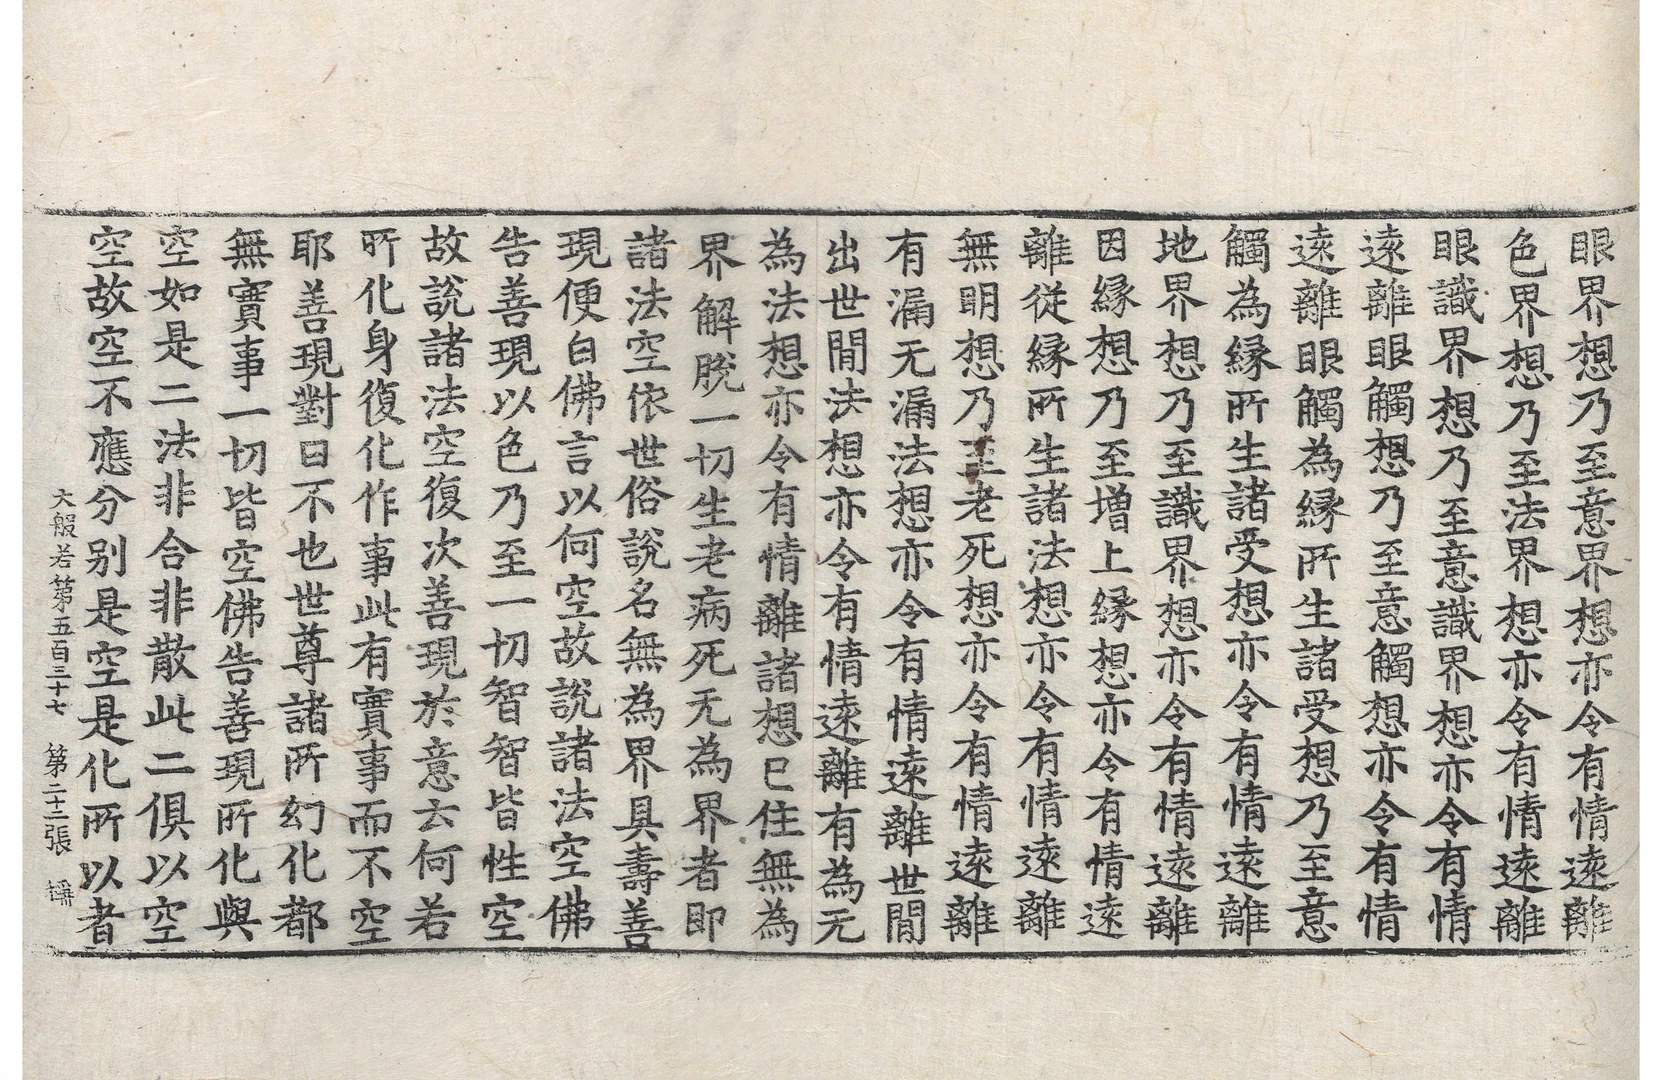 眼界想乃至意界想亦令有情遠離
色界想乃至法界想亦令有情遠離
眼識界想乃至意識界想亦令有情
遠離眼觸想乃至意觸想亦令有情
遠離眼觸為緣所生諸受想乃至意
觸為緣所生諸受想亦令有情遠離
地界想乃至識界想亦令有情遠離
因緣想乃至增上緣想亦令有情遠
離從緣所生諸法想亦令有情遠離
無明想乃至老死想亦令有情遠離
有漏无漏法想亦令有情遠離世間
出世間法想亦令有情遠離有為无
為法想亦令有情離諸想已住無為
界解脫一切生老病死无為界者即
諸法空依世俗說名無為界具壽善
現便白佛言以何空故說諸法空佛
告善現以色乃至一切智智皆性空
故說諸法空復次善現於意云何若
所化身復化作事此有實事而不空
耶善現對曰不也世尊諸所幻化都
無實事一切皆空佛告善現所化與
空如是二法非合非散此二俱以空
空故空不應分別是空是化所以者
大般若第五百三十七 第二十三張